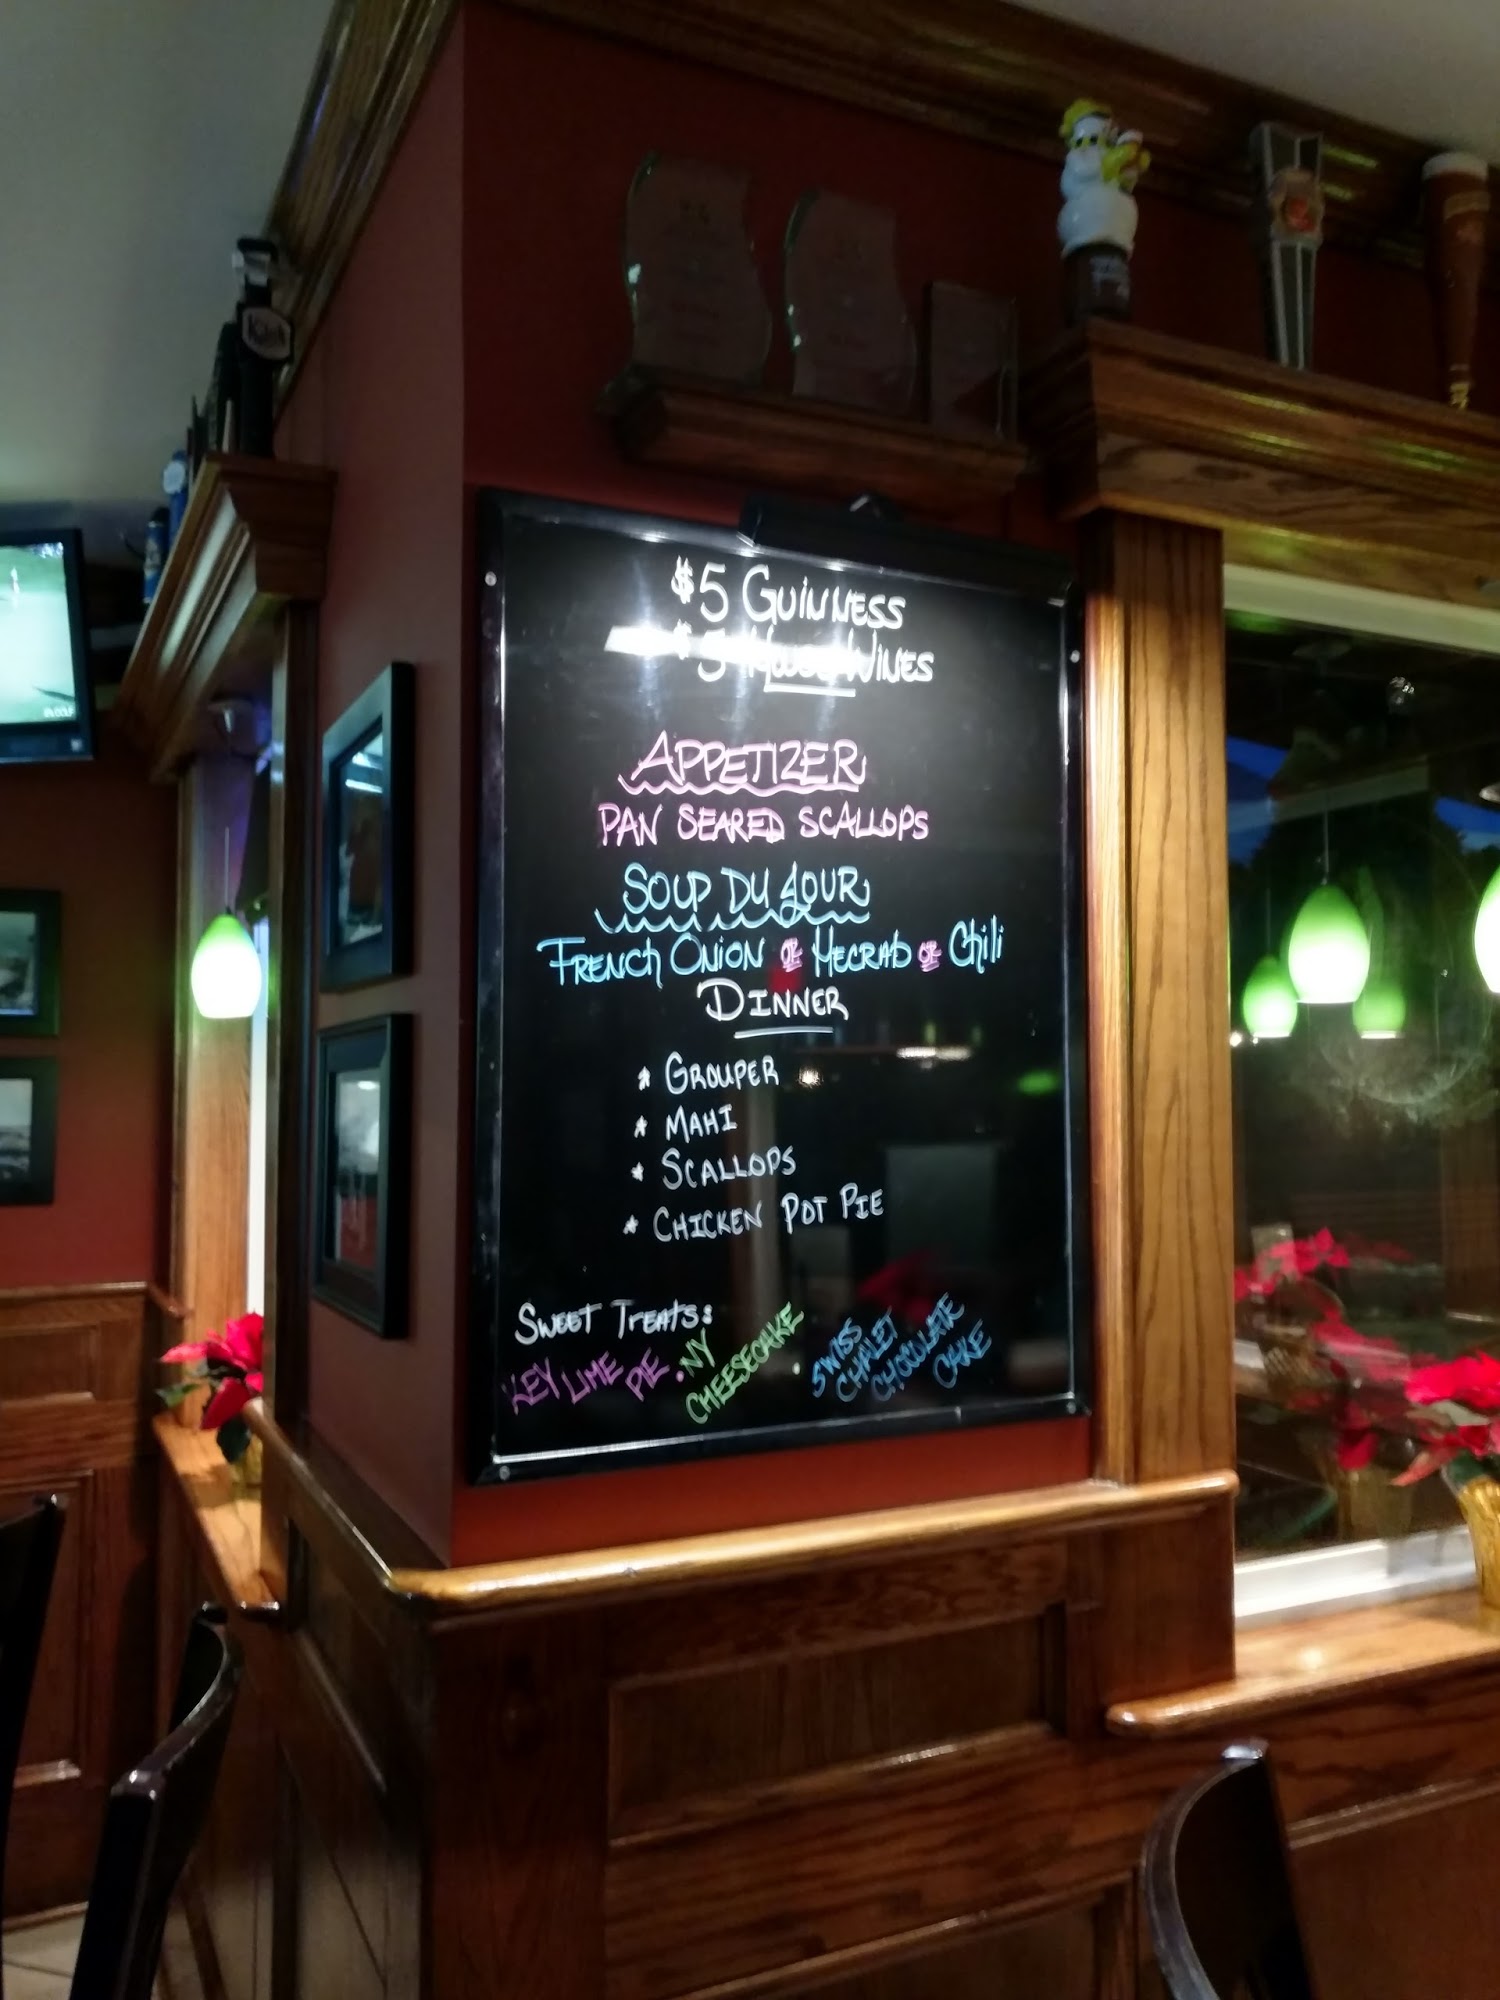 $5 GUINNESS
$5 WINES
APPETIZER
PAN SEARED SCALLOPS
SOUP DU JOUR
FRENCH ONION OR MECRAB OR Chili
DINNER
* GROUPER
* MAHI
* SCALLOPS
* CHICKEN POT PIE
SWEET TREATS:
KEY LIME PIE . NY CHEESECAKE . SWISS CHALET CHOCOLATE CAKE